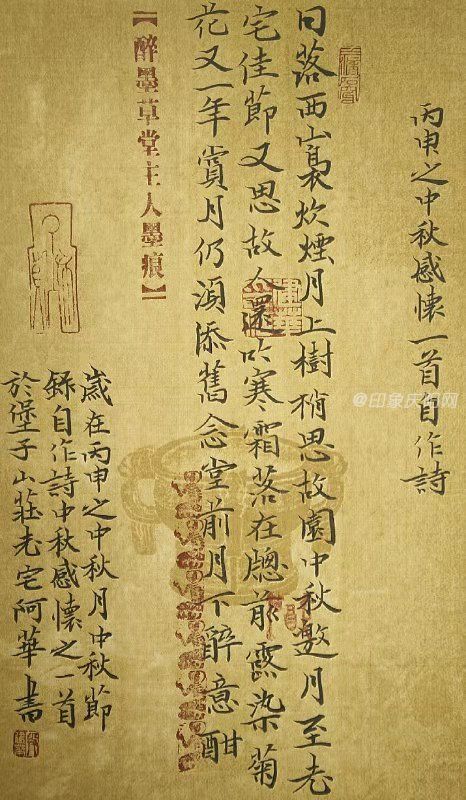 丙申之中秋感懷一首自作詩
日落西山裊炊煙月上樹梢思故園中秋邀月至老
宅佳節又思故人還吟寒霜落在牕前露染菊
花又一年賞月仍須添舊念堂前月下醉意酣
【醉墨草堂主人墨痕】
歲在丙申之中秋月中秋節
錄自作詩中秋感懷之一首
於堡子山莊老宅阿華書
@印象庆阳网